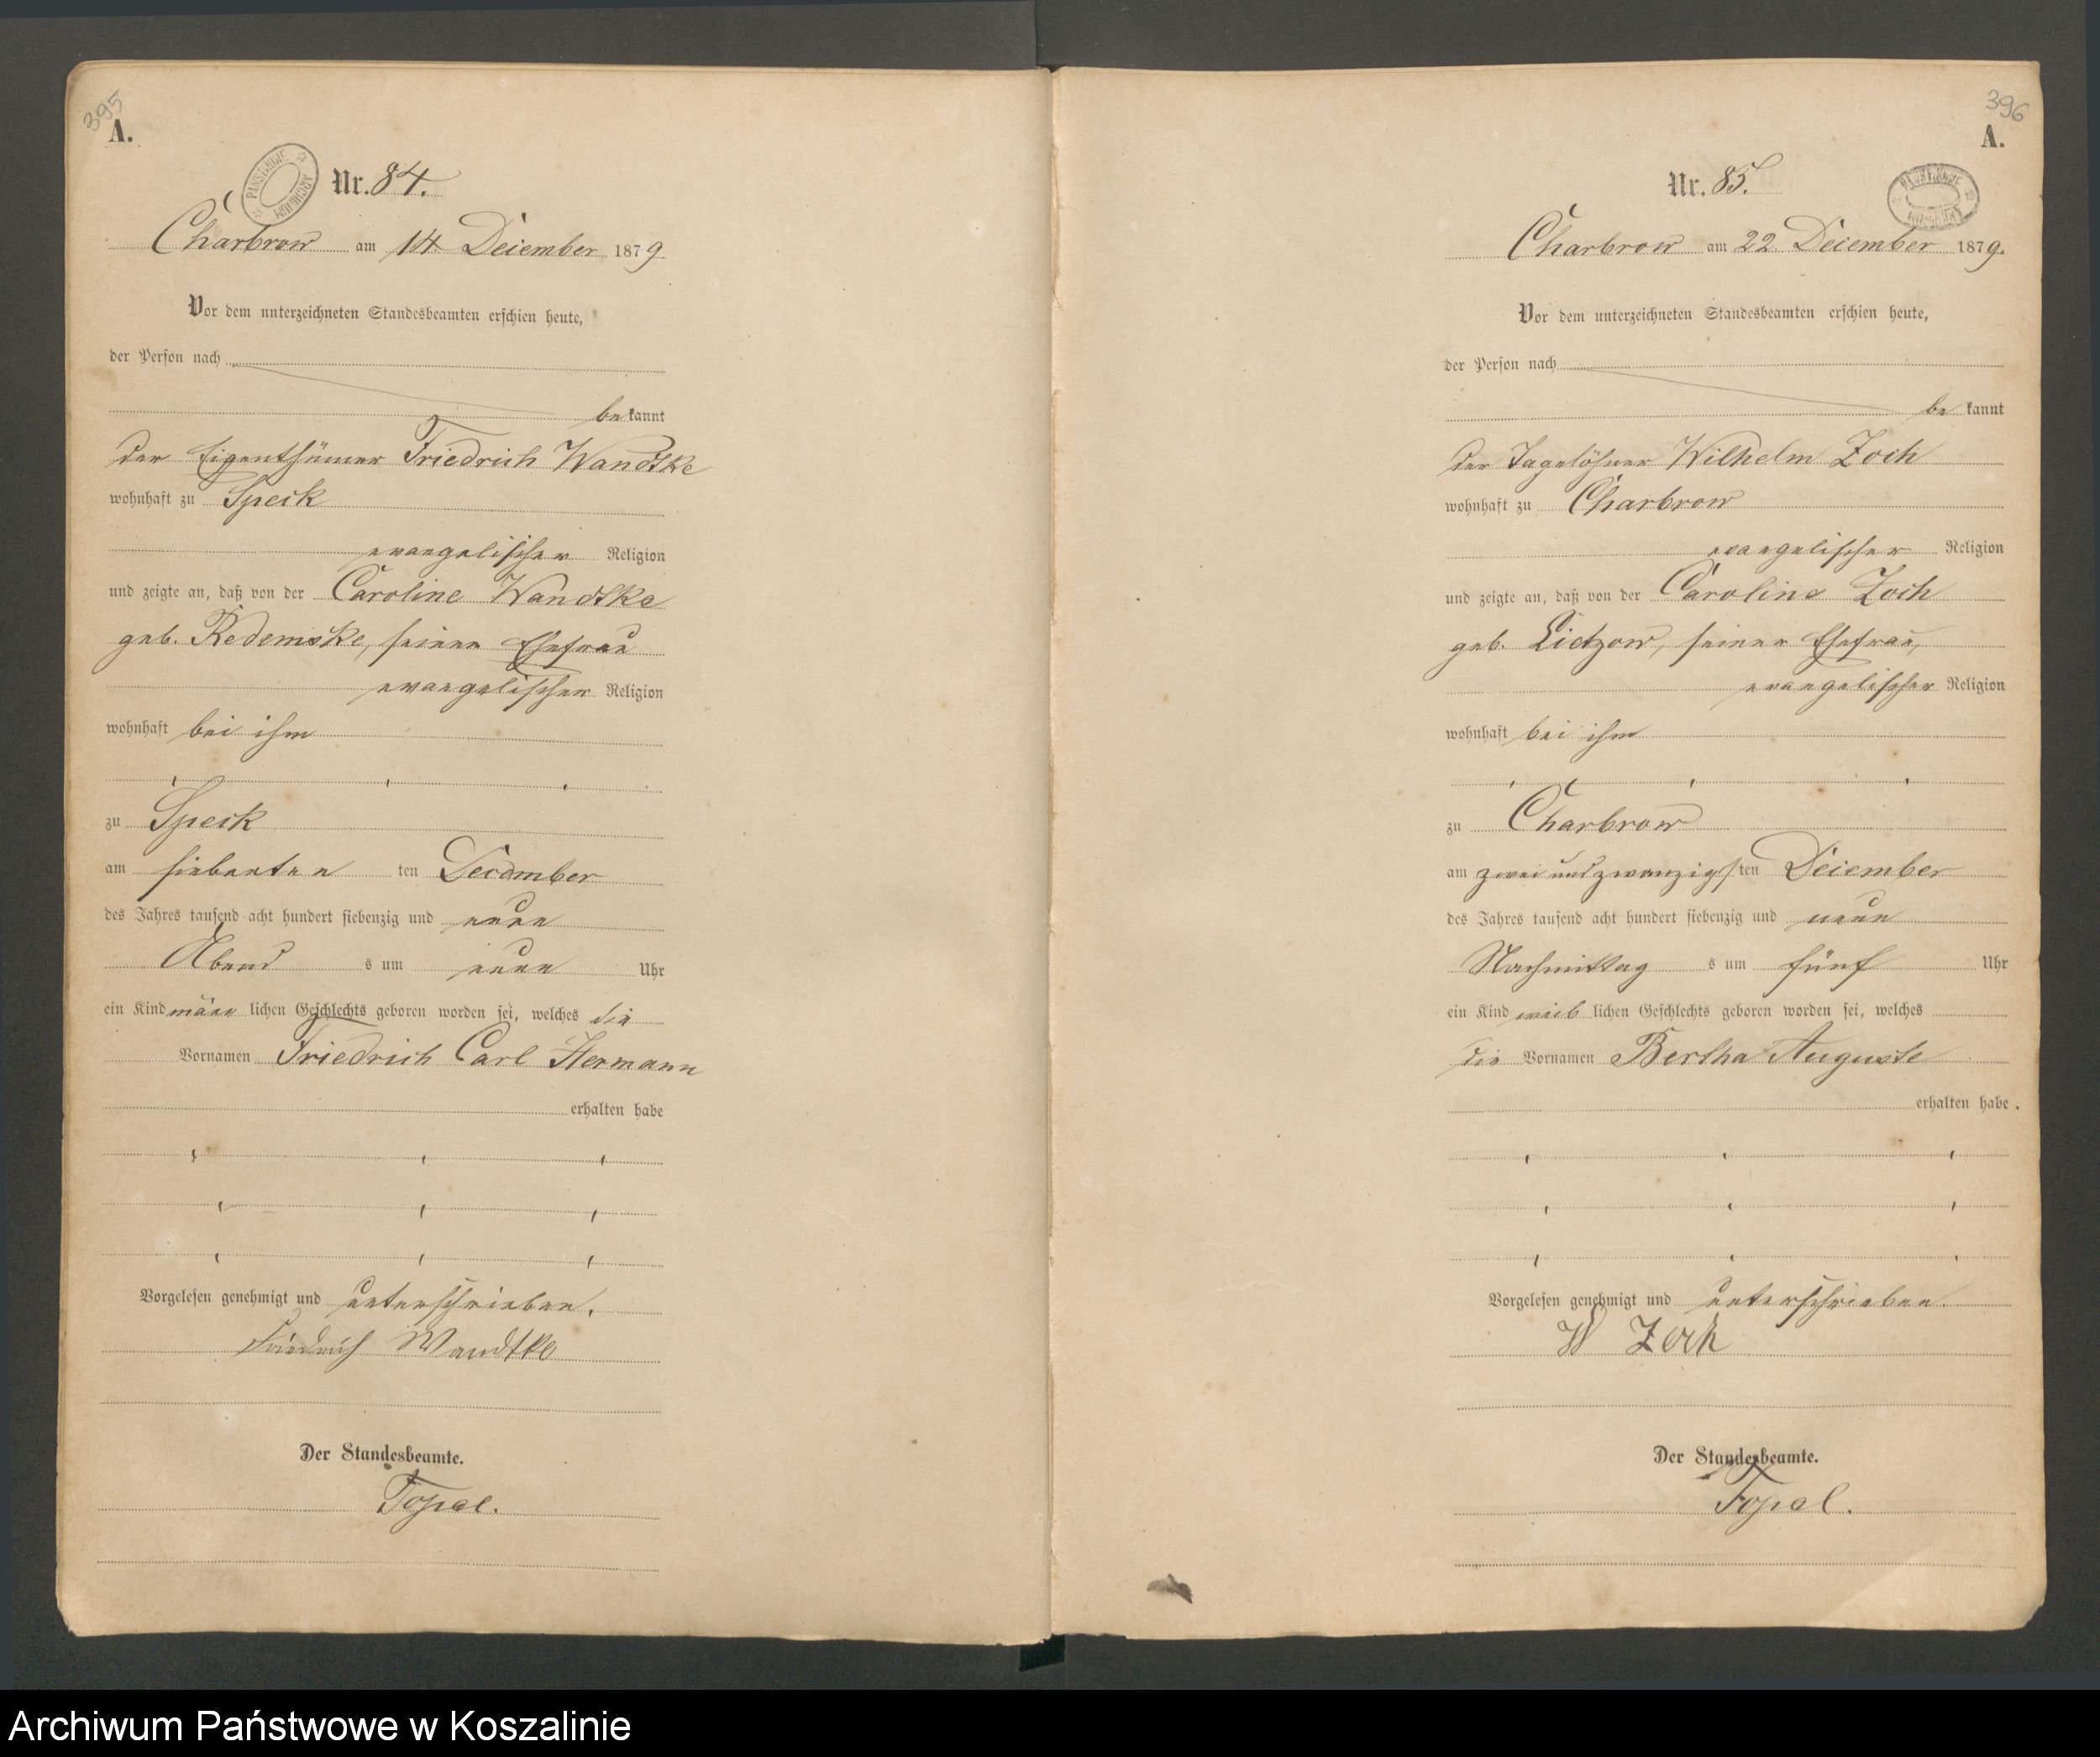 395
A.
Nr. 84.
Charbrow am 14 December 1879
Vor dem unterzeichneten Standesbeamten erschien heute,
der Person nach
bekannt
der Eigenthümer Friedrich Wandtke
wohnhaft zu Speck
evangelischer Religion
und zeigte an, daß von der Caroline Wandtke
geb. Redemske, seiner Ehefrau
evangelischer Religion
wohnhaft bei ihm
zu Speck
am siebenten ten December
des Jahres tausend acht hundert siebenzig und neun
Abend s um neun Uhr
ein Kind männlichen Geschlechts geboren worden sei, welches die
Vornamen Friedrich Carl Hermann
erhalten habe
Vorgelesen genehmigt und unterschrieben.
Friedrich Wandtke
Der Standesbeamte.
Topel.
396
A.
Nr. 85.
Charbrow am 22 December 1879.
Vor dem unterzeichneten Standesbeamten erschien heute,
der Person nach
bekannt
der Tagelöhner Wilhelm Zoch
wohnhaft zu Charbrow
evangelischer Religion
und zeigte an, daß von der Caroline Zoch
geb. Lietzow, seiner Ehefrau,
evangelischer Religion
wohnhaft bei ihm
zu Charbrow
am zwei und zwanzigsten December
des Jahres tausend acht hundert siebenzig und neun
Nachmittag s um fünf Uhr
ein Kind weiblichen Geschlechts geboren worden sei, welches
die Vornamen Bertha Auguste
erhalten habe.
Vorgelesen genehmigt und unterschrieben.
W Zoch
Der Standesbeamte.
Topel.
Archiwum Państwowe w Koszalinie